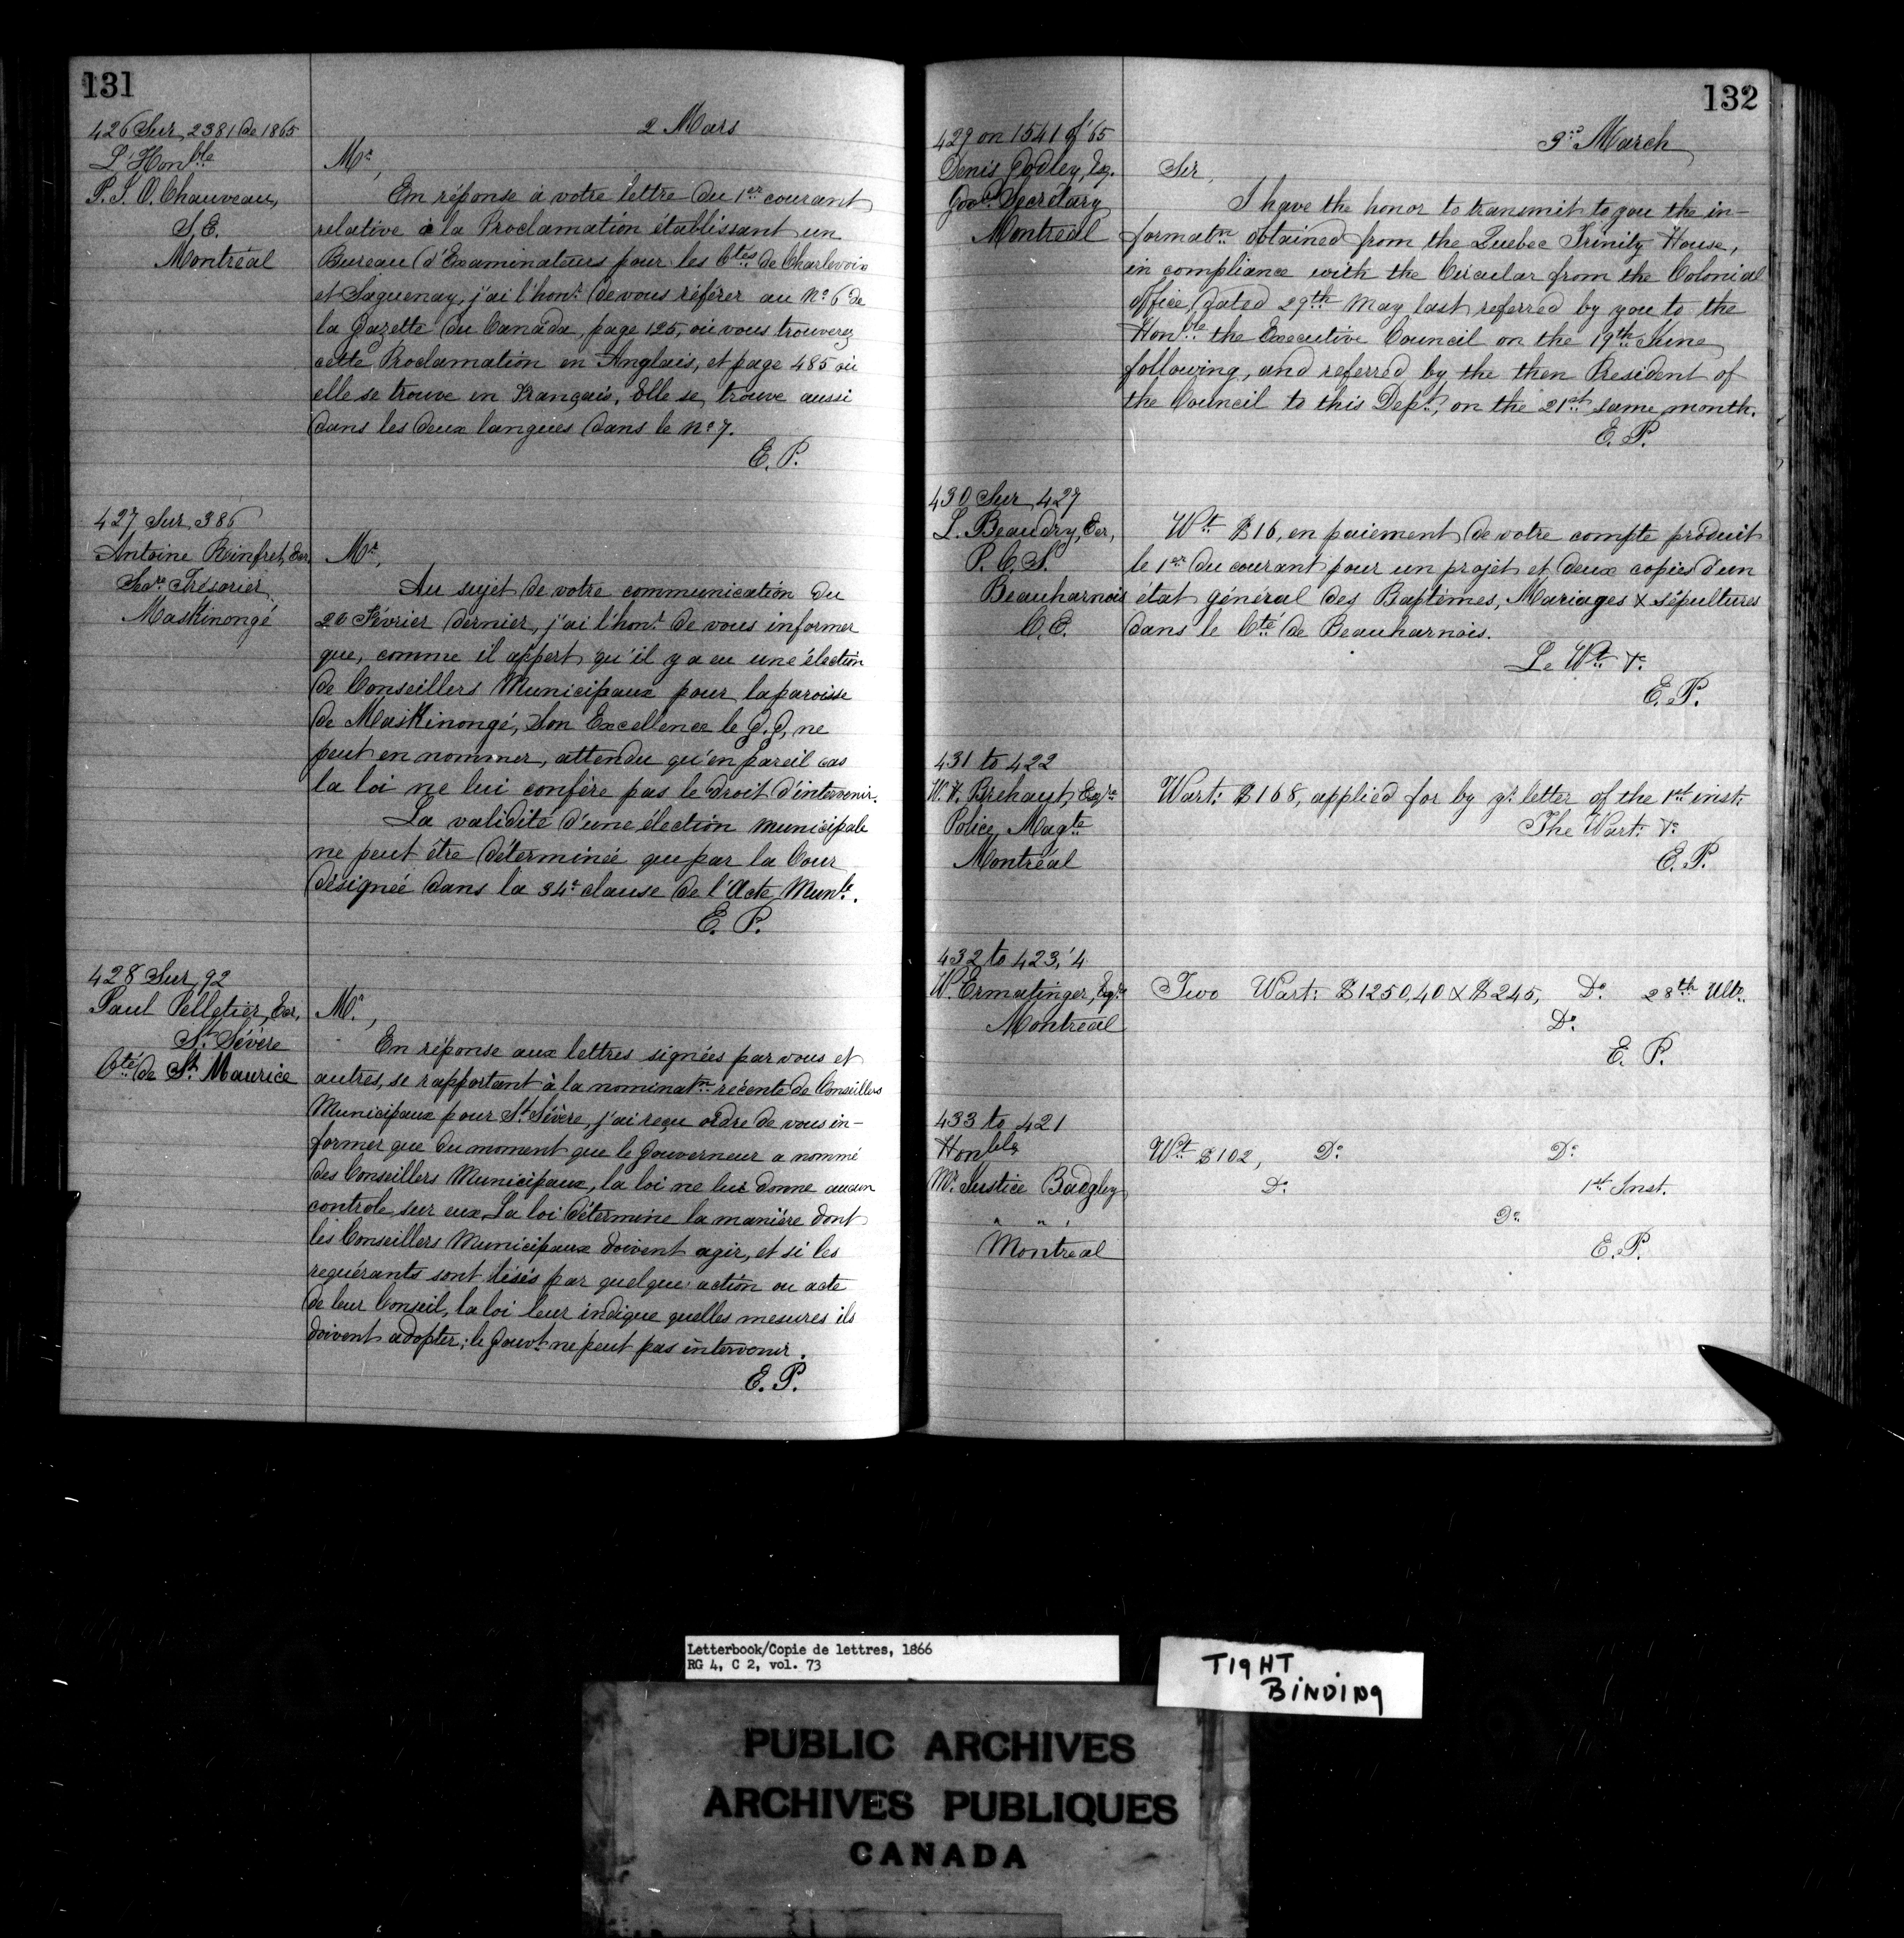 131
2 Mars
426 Sur 2381 de 1865
L'Honble
P. J. O. Chauveau,
S. E.
Montréal
Mr,
En réponse à votre lettre du 1er courant
relative à la Proclamation établissant un
Bureau d'Examinateurs pour les Ctés de Charlevoix
et Saguenay, j'ai l'honr de vous référer au No 6 de
la Gazette du Canada, page 125, où vous trouverez
cette Proclamation en Anglais, et page 485 où
elle se trouve en Français. Elle se trouve aussi
dans les deux langues dans le No 7.
E. P.
427 Sur 386
Antoine Rinfret, Ecr,
Secre Trésorier
Maskinongé
Mr,
Au sujet de votre communication du
26 Février dernier, j'ai l'honr de vous informer
que, comme il appert qu'il y a eu une élection
de Conseillers Municipaux pour la paroisse
de Maskinongé, Son Excellence le G. G. ne
peut en nommer, attendu qu'en pareil cas
la loi ne lui confère pas le droit d'intervenir.
La validité d'une élection municipale
ne peut être déterminée que par la Cour
désignée dans la 34e clause de l'Acte Munle.
E. P.
428 Sur 92
Paul Pelletier, Ecr,
St Sévère
Cté de St Maurice
Mr,
En réponse aux lettres signées par vous et
autres, se rapportant à la nominatn récente de Conseillers
Municipaux pour St Sévère, j'ai reçu ordre de vous in-
former que du moment que le Gouverneur a nommé
des Conseillers Municipaux, la loi ne lui donne aucun
controle sur eux. La loi détermine la manière dont
les Conseillers Municipaux doivent agir, et si les
requérants sont lésés par quelque action ou acte
de leur Conseil, la loi leur indique quelles mesures ils
doivent adopter; le Gouvt ne peut pas intervenir.
E. P.
132
3rd March
429 on 1541 of '65
Denis Godley, Esq.
Govr Secretary
Montreal
Sir,
I have the honor to transmit to you the in-
formatn obtained from the Quebec Trinity House,
in compliance with the Circular from the Colonial
Office, dated 29th May last referred by you to the
Honble the Executive Council on the 19th June
following, and referred by the then President of
the Council to this Dept, on the 21st same month.
E. P.
430 Sur 427
L. Beaudry, Ecr,
P. C. S.
Beauharnois
C. E.
Wt $16, en paiement de votre compte produit
le 1er du courant pour un projet et deux copies d'un
état général des Baptêmes, Mariages & sépultures
dans le Cté de Beauharnois.
Le Wt &c
E. P.
431 to 422
W. H. Brehaut, Esqre
Police Magte
Montréal
Wart: $168, applied for by yr letter of the 1st inst:
The Wart: &c
E. P.
432 to 423, '4
W. Ermatinger, Esqre
Montreal
Two Wart: $1250,40 & $245, Do 28th Ulto.
Do
E. P.
433 to 421
Honble
Mr Justice Badgley
" " ,
Montreal
Wt $102, Do Do
Do 1st Inst.
Do
E. P.
Letterbook/Copie de lettres, 1866
RG 4, C 2, vol. 73
TIGHT
BINDING
PUBLIC ARCHIVES
ARCHIVES PUBLIQUES
CANADA